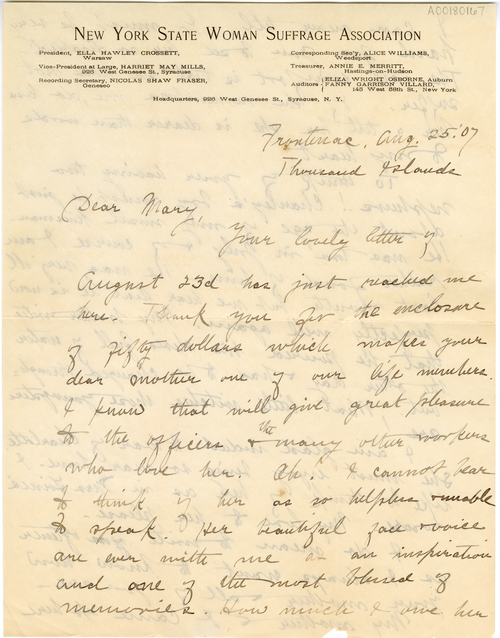 A00180167
NEW YORK STATE WOMAN SUFFRAGE ASSOCIATION
President, ELLA HAWLEY CROSSETT,
Warsaw
Vice-President at Large, HARRIET MAY MILLS,
926 West Genesee St., Syracuse
Recording Secretary, NICOLAS SHAW FRASER,
Geneseo
Corresponding Sec'y, ALICE WILLIAMS,
Weedsport
Treasurer, ANNIE E. MERRITT,
Hastings-on-Hudson
Auditors ELIZA WRIGHT OSBORNE, Auburn
FANNY GARRISON VILLARD,
145 West 58th St., New York
Headquarters, 926 West Genesee St., Syracuse, N. Y.
Frontenac, Aug. 25. '07
Thousand Islands
Dear Mary,
Your lovely letter of
August 23d has just reached me
here. Thank you for the enclosure
of fifty dollars which makes your
dear mother one of our life members.
I know that will give great pleasure
to the officers & the many other workers
who love her. Oh! I cannot bear
to think of her as so helpless & unable
to speak. Her beautiful face & voice
are ever with me as an inspiration
and one of the most blessed of
memories. How much I owe her